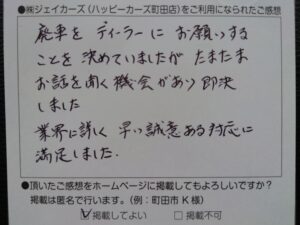 ●㈱ジェイカーズ（ハッピーカーズ町田店）をご利用になられたご感想
廃車を ディーラーに お願いする
ことを 決めていましたが たまたま
お話を聞く機会があり 即決
しました
業界に詳しく 早い誠意ある対応に
満足しました.
●頂いたご感想をホームページに掲載してもよろしいですか？
掲載は匿名で行います。（例：町田市 K 様）
☑掲載してよい □掲載不可